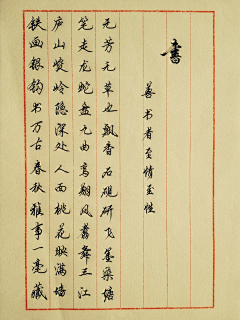 書
善书者至情至性
无芳无草也飘香石砚研飞墨染塘
笔走龙蛇盘九曲鸾翔凤翥舞三江
庐山峻岭隐深处人面桃花映满墙
铁画银钩书万古春秋雅事一毫藏